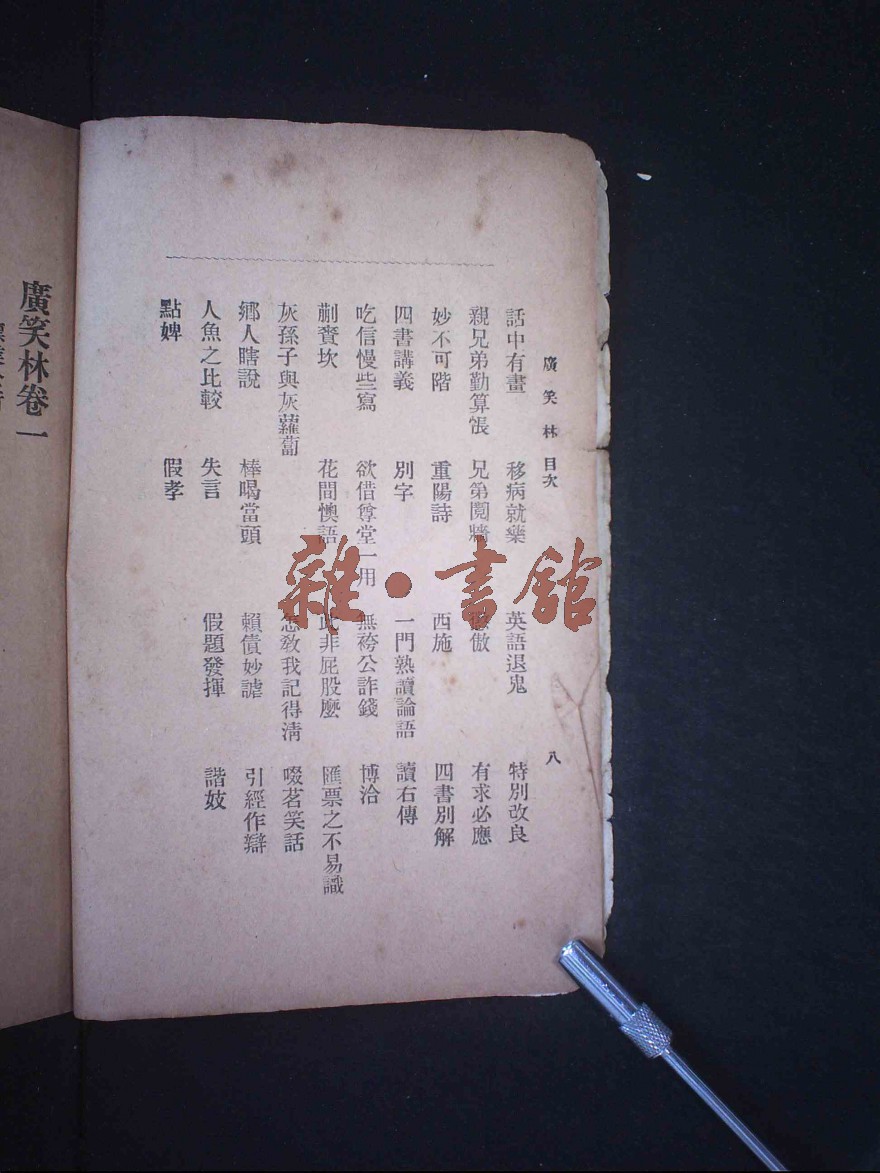 廣笑林目次 八
話中有畫 移病就藥 英語退鬼 特別改良
親兄弟勤算帳 兄弟鬩牆 傲 有求必應
妙不可階 重陽詩 西施 四書別解
四書講義 別字 一門熟讀論語 讀右傳
吃信慢些寫 欲借尊堂一用 無袴公詐錢 博洽
蒯賚坎 花間懊語 此非屁股麼 匯票之不易識
灰孫子與灰蘿蔔 怎敎我記得淸 啜茗笑話
鄉人瞎說 棒喝當頭 賴債妙謔 引經作辯
人魚之比較 失言 假題發揮 諧妓
點婢 假孝
廣笑林卷一
雜·書館